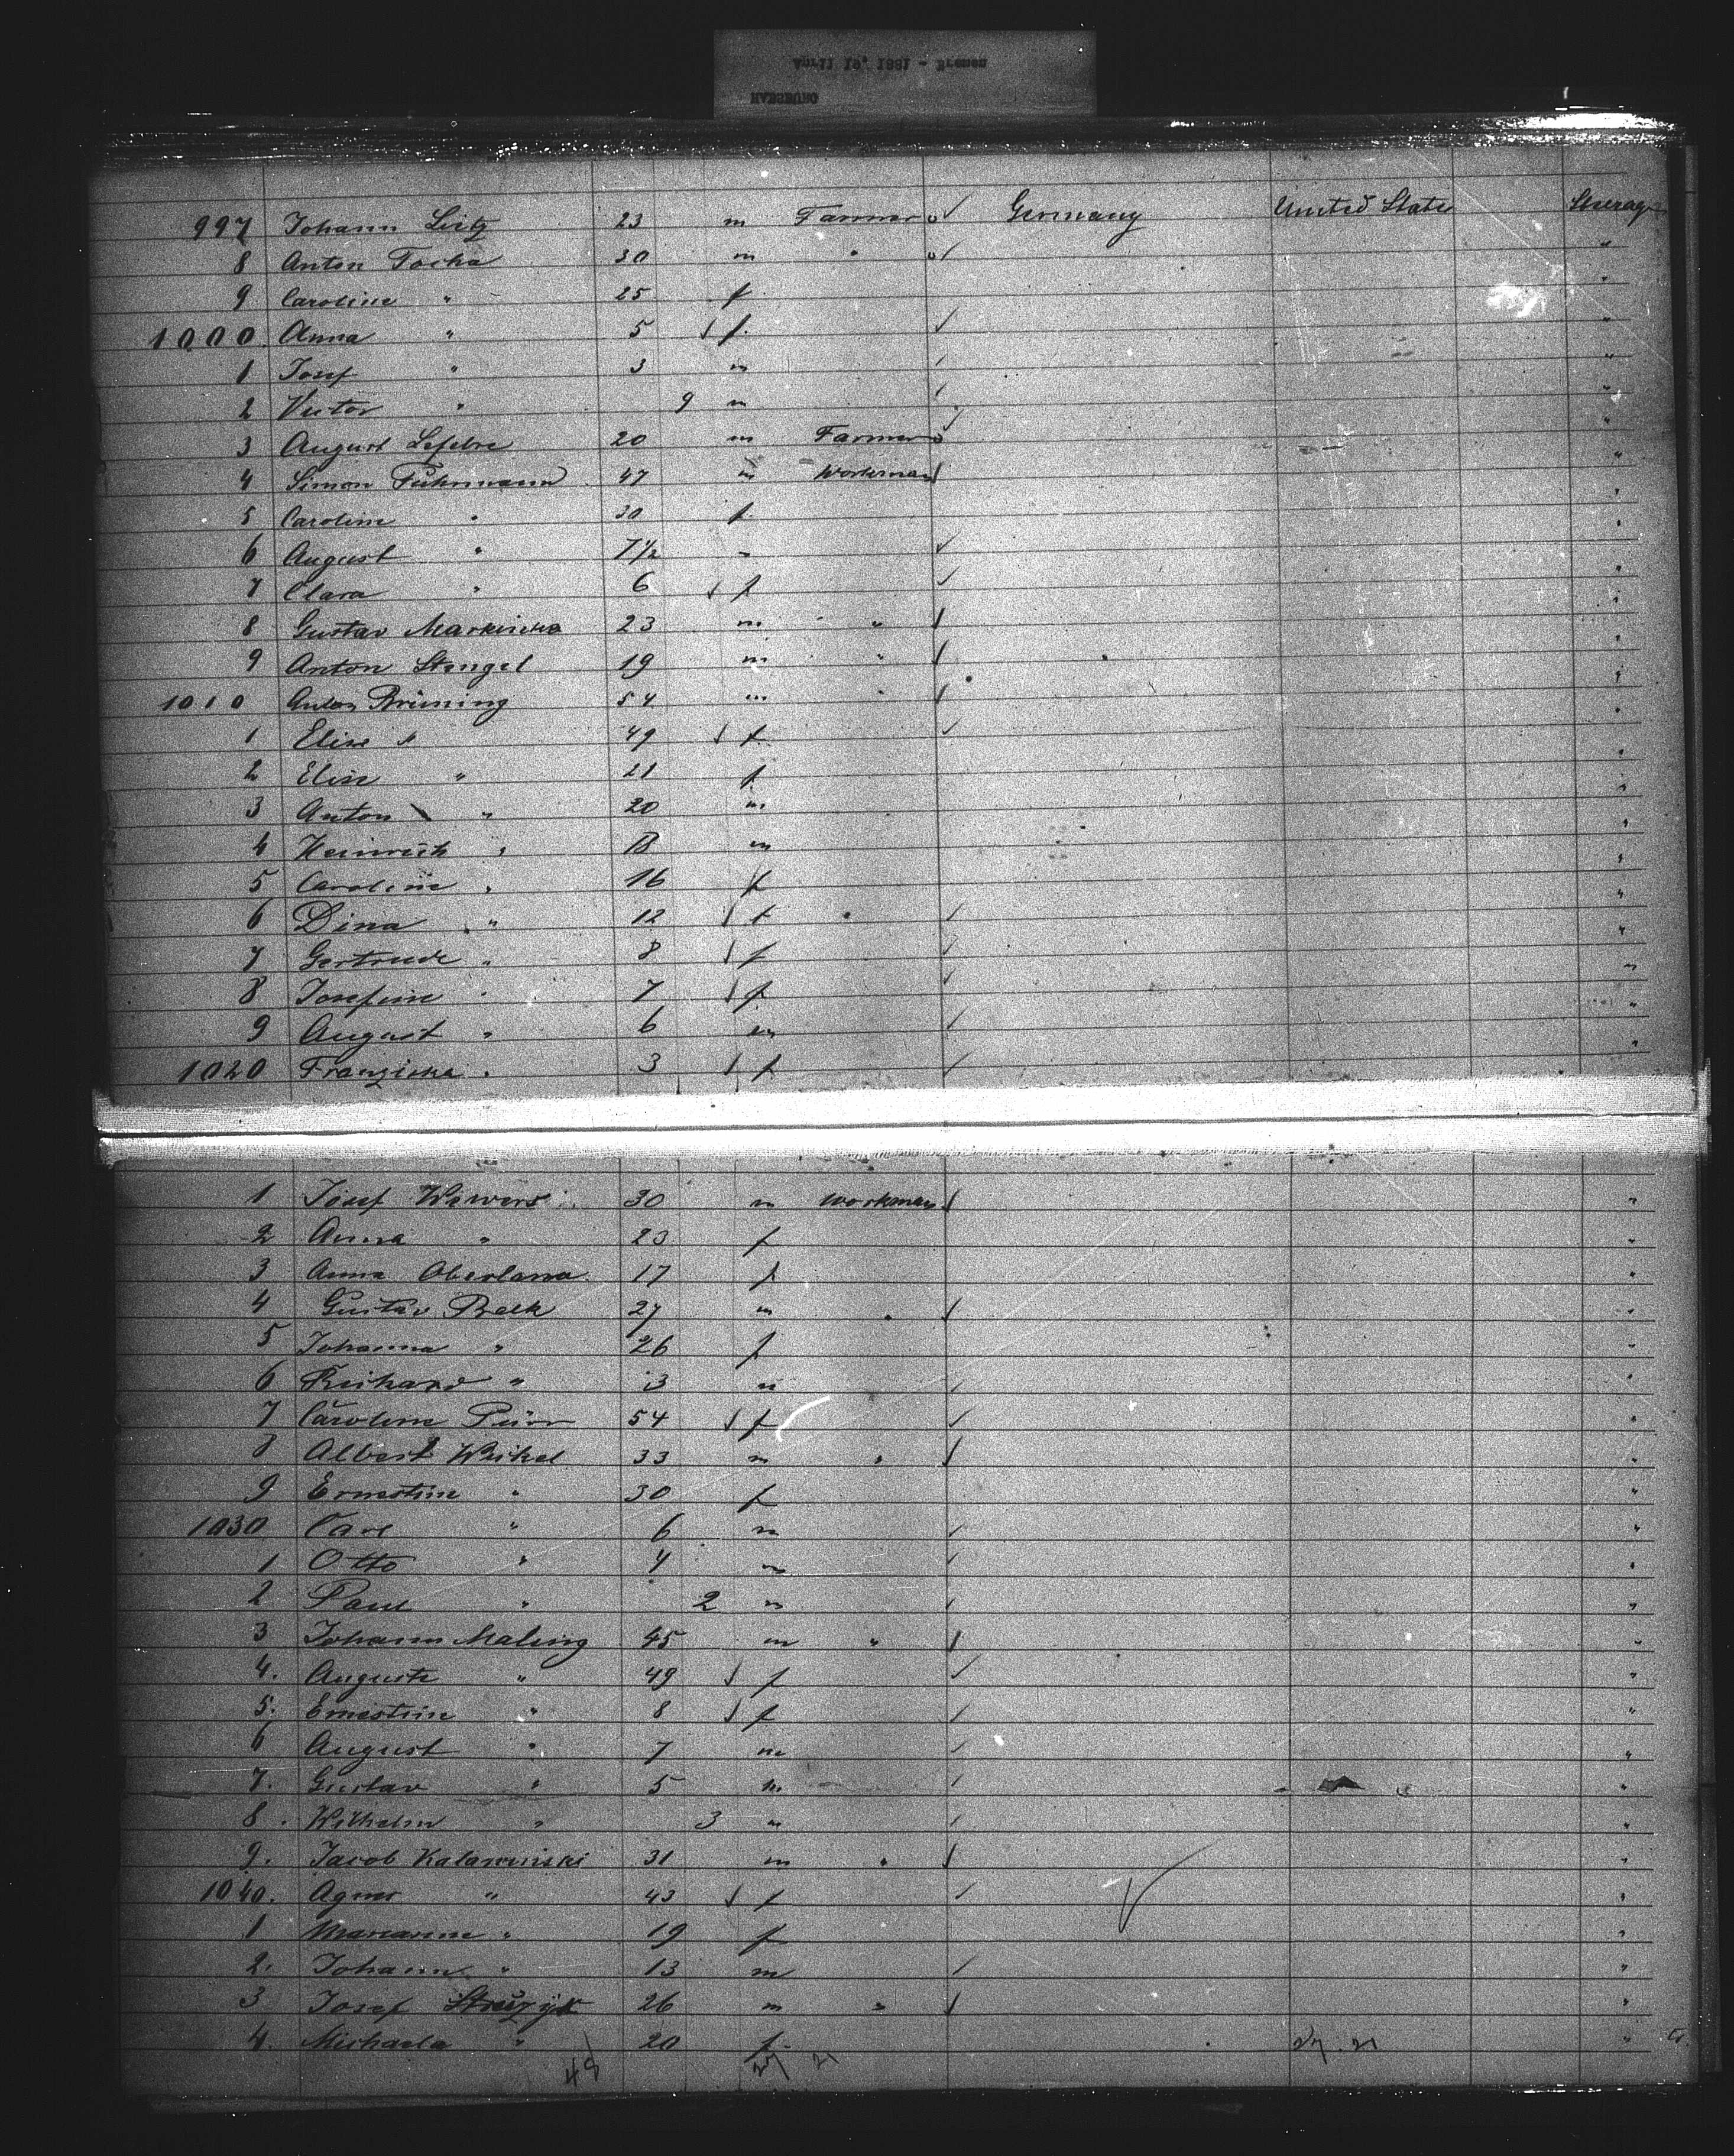 April 19, 1881 - Bremen
997 Johann Leitz 23 m Farmer Germany United States Steerage
8 Anton Tocha 30 m " "
9 Caroline " 25 f "
1000. Anna " 5 f. "
1 Josef " 3 m "
2 Victor " 9 m "
3 August Lefebre 20 m Farmer "
4 Simon Fuhrmann 47 m Workman "
5 Caroline " 30 f. "
6 August " 7 1/2 "
7 Clara " 6 f "
8 Gustav 23 m " "
9 Anton Stengel 19 m " "
1010 Anton Brüning 54 m " "
1 Elise " 49 f. "
2 Elise " 21 f "
3 Anton " 20 m "
4 Heinrich " 18 m "
5 Caroline " 16 f "
6 Dina " 12 f "
7 Gertrude " 8 f "
8 Josefine " 7 f "
9 August " 6 m "
1020 Franziska " 3 f "
1 Josef Wewers 30 m Workman "
2 Anna " 23 f "
3 Anna 17 f "
4 Gustav Beck 27 m " "
5 Johanna " 26 f "
6 Richard " 3 m "
7 Caroline 54 f "
8 Albert Weikel 33 m " "
9 Ernestine " 30 f "
1030 Carl " 6 m "
1 Otto " 4 m "
2 Paul " 2 m "
3 Johann Maling 45 m " "
4. Auguste " 49 f "
5. Ernestine " 8 f "
6 August " 7 m "
7. Gustav " 5 m "
8. Wilhelm " 3 m "
9. Jacob 31 m " "
1040. Agnes " 43 f "
1 Marianne " 19 f "
2. Johann " 13 m "
3 Josef 26 m " "
4. Michaela " 20 f. 27. 21 "
48 27 21